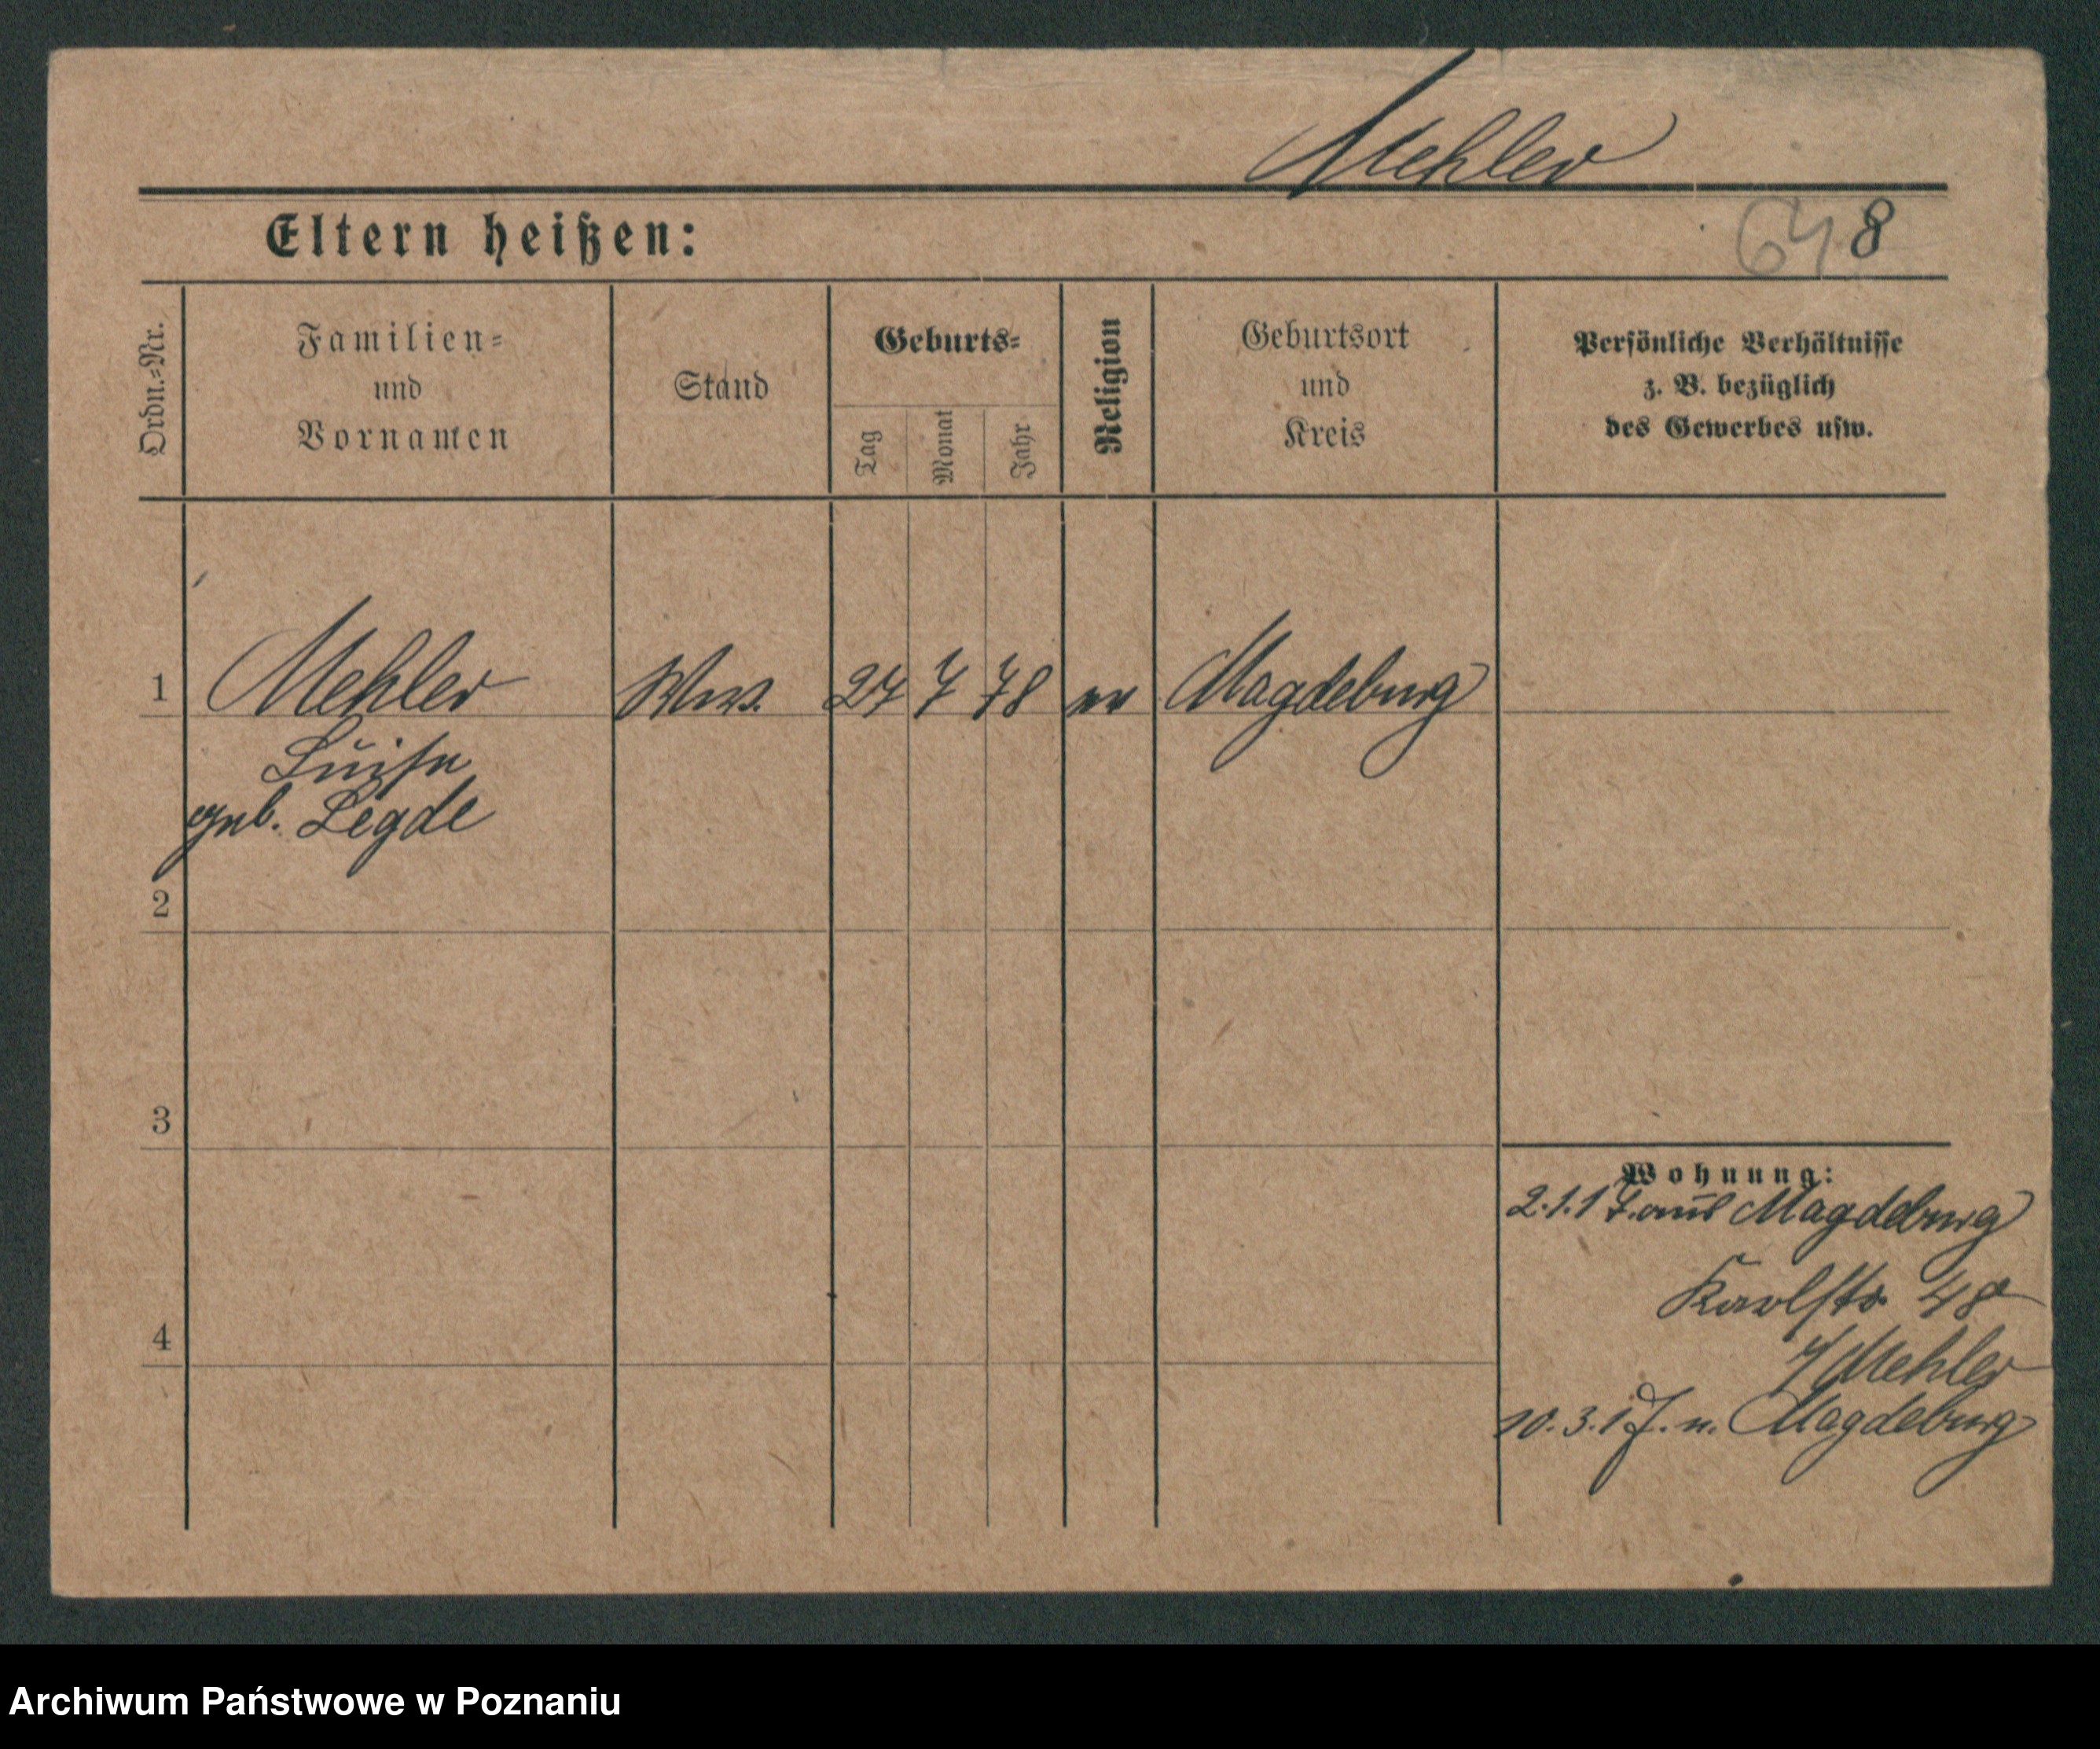 Mehler
Eltern heißen:
648
Ordn.=Nr.
Familien=
und
Vornamen
Stand
Geburts=
Tag
Monat
Jahr
Religion
Geburtsort
und
Kreis
Persönliche Verhältnisse
z. B. bezüglich
des Gewerbes usw.
1 Mehler Ww. 27 7 78 ev Magdeburg
Luise
geb. Legde
2
3
4
Wohnung:
2.1.17. aus Magdeburg
Karlstr. 48
Mehler
10.3.17. n. Magdeburg
Archiwum Państwowe w Poznaniu